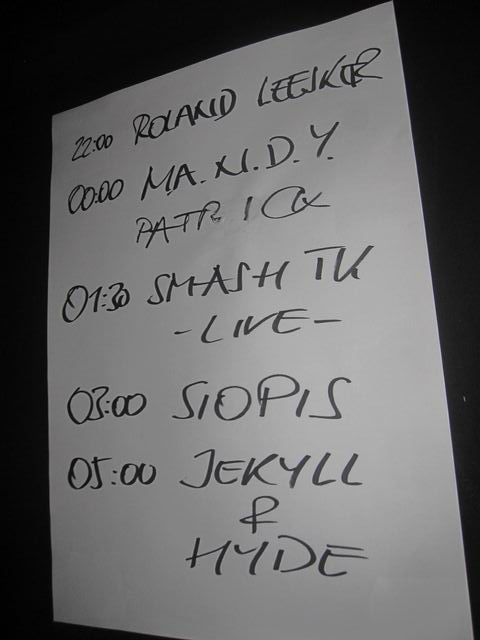 22:00 ROLAND LEESKER
00:00 M.A.N.D.Y.
PATRICK
01:30 SMASH TV
-LIVE-
03:00 SIOPIS
05:00 JEKYLL
&
HYDE